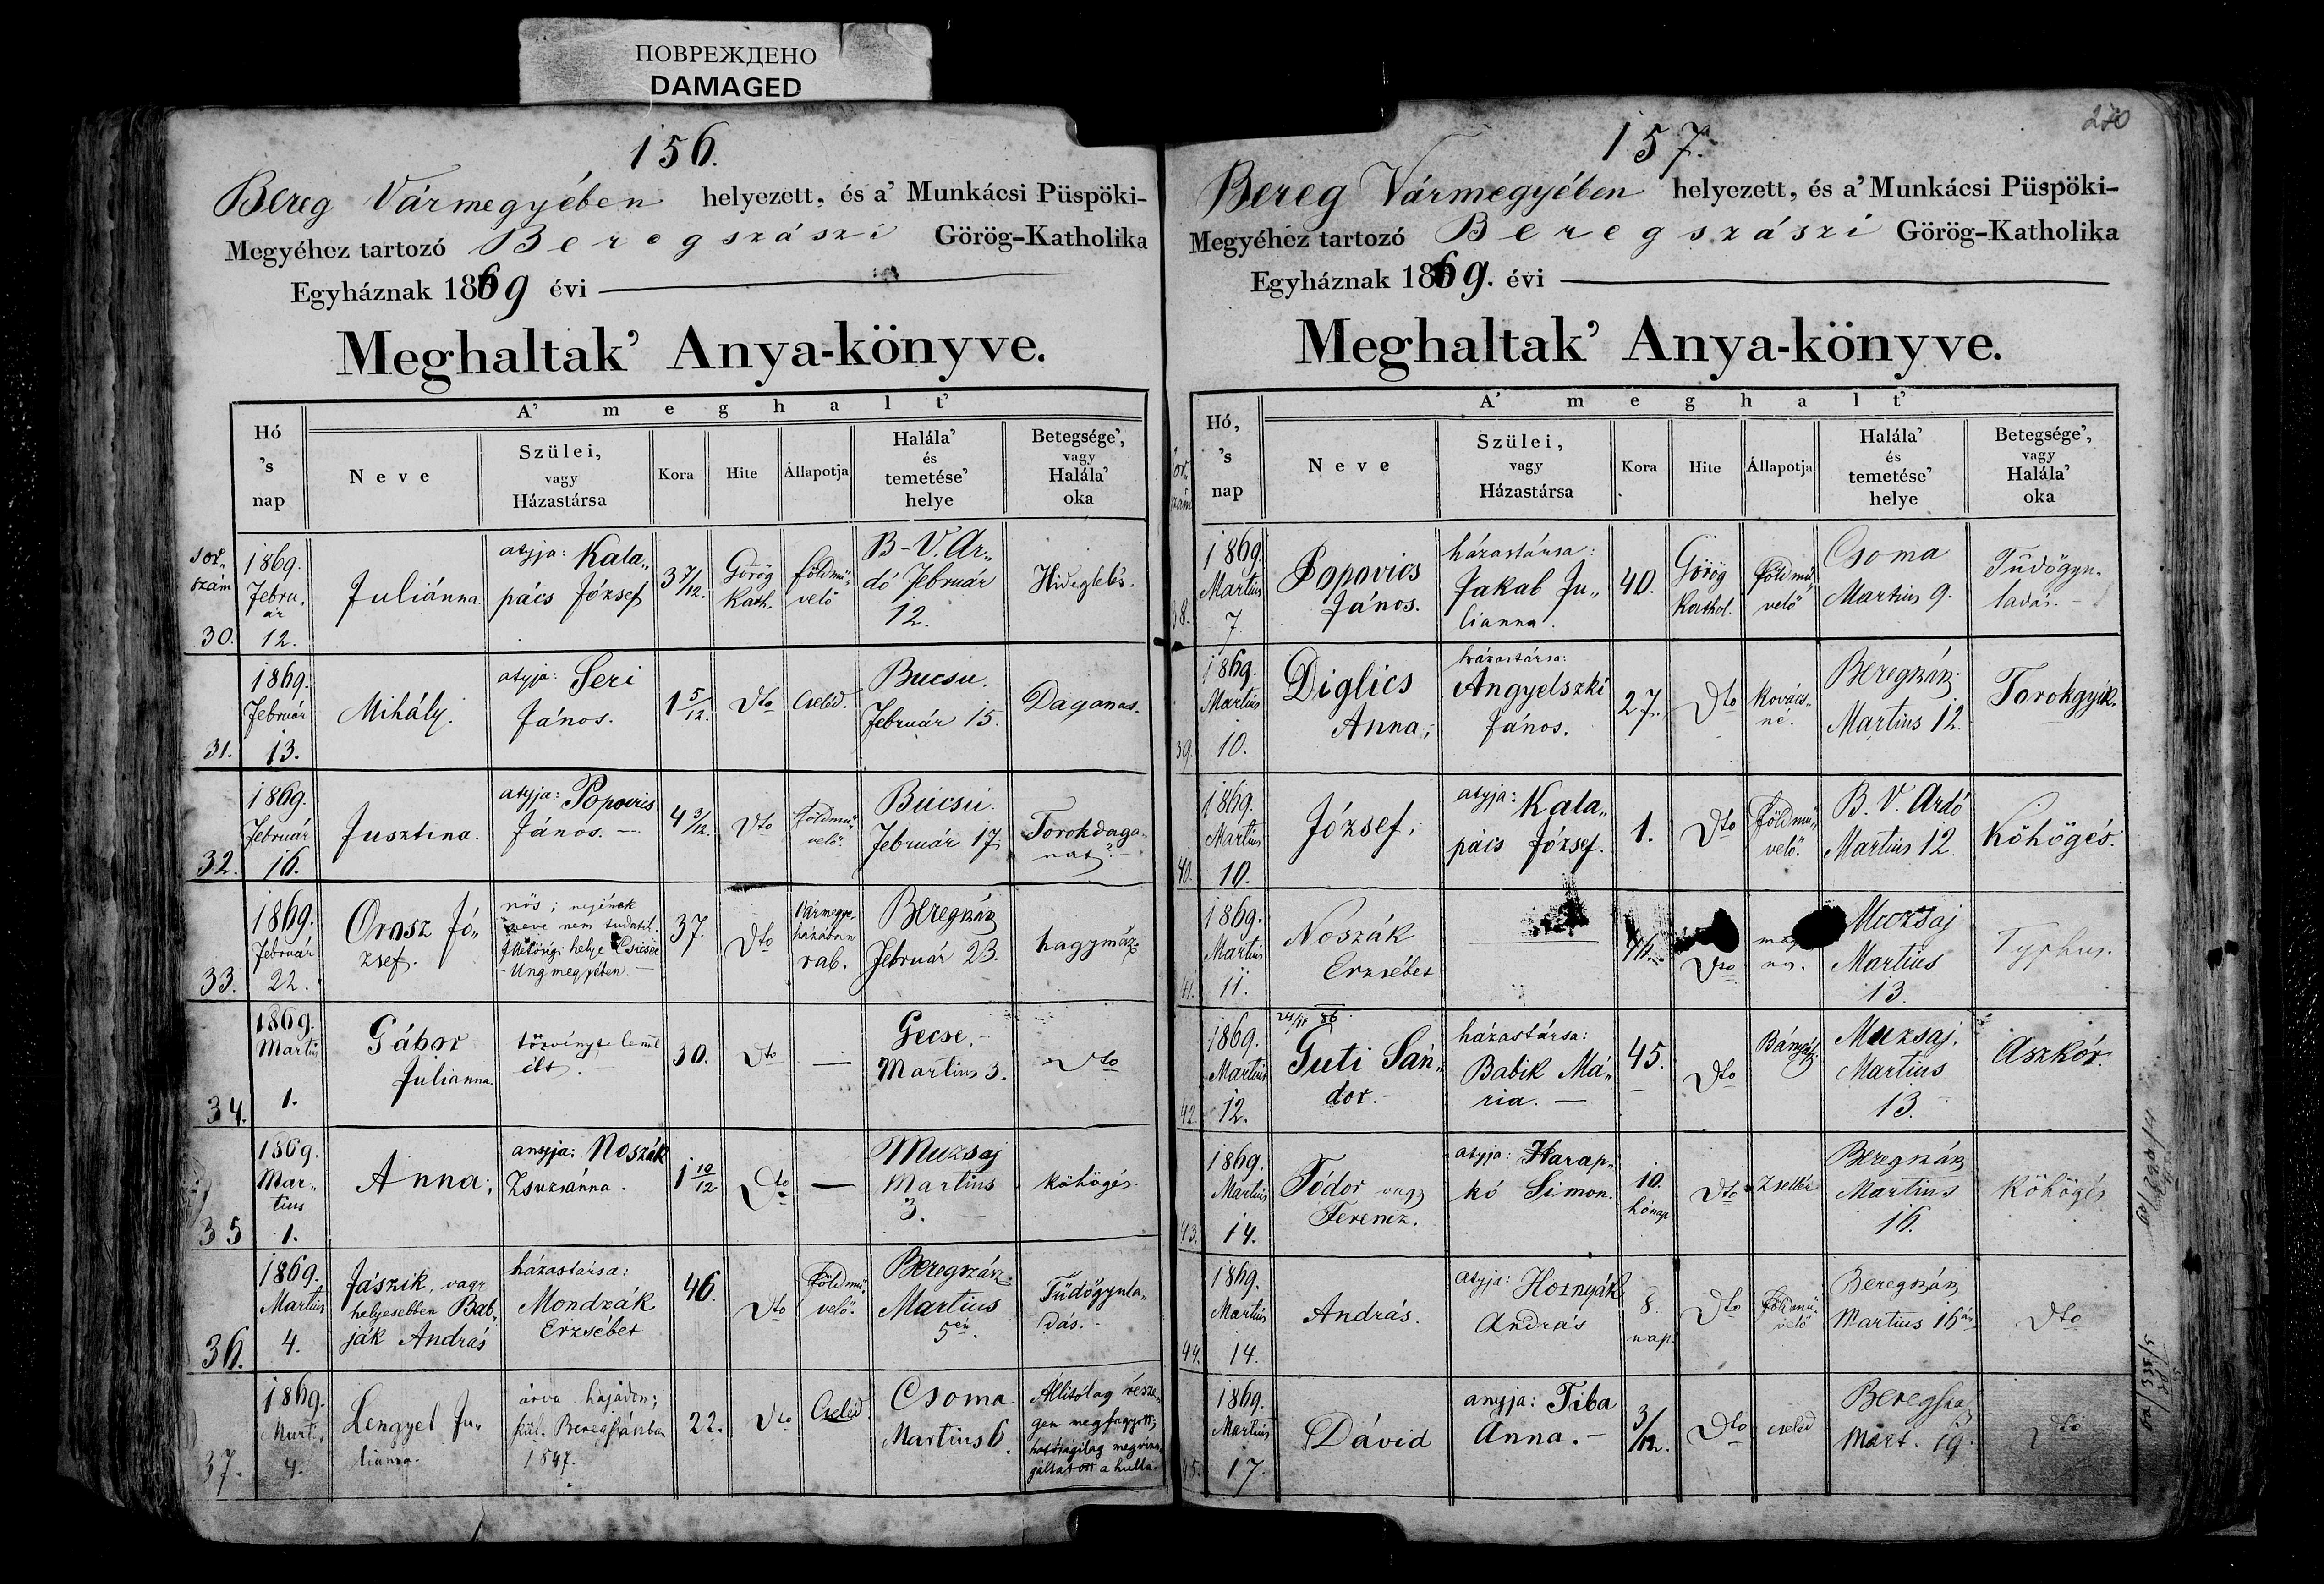 ПОВРЕЖДЕНО
DAMAGED
156.
Bereg Vármegyében helyezett, és a' Munkácsi Püspöki-
Megyéhez tartozó Beregszászi Görög-Katholika
Egyháznak 1869 évi
Meghaltak' Anya-könyve.
A' meghalt'
Hó 's nap
Neve
Szülei, vagy Házastársa
Kora
Hite
Állapotja
Halála' és temetése' helye
Betegsége', vagy Halála' oka
Sor-szám
30.
1869. Febru-ár 12.
Juliánna.
atyja: Kala-
pács József
3 7/12.
Görög Kath.
földmű-velő
B-V. Ar-
dó Február
12.
Hideglelés.
31.
1869. Február 13.
Mihály.
atyja: Seri
János.
1 5/12.
Dto
Cseléd.
Bucsu.
Február 15.
Daganas.
32.
1869. Február 16.
Jusztina.
atyja: Popovics
János. —
4 3/12.
Dto
földmű-velő.
Búcsú.
Február 17.
Torokdaga-
nat
33.
1869. Február 22.
Orosz Jó-
zsef.
nős; nejének
neve nem tudatik.
helye Csicser
Ungmegyében. —
37.
Dto
Vármegye-
házában
rab.
Beregszász
Február 23.
hagymáz
34.
1869. Martius 1.
Gábor
Julianna.
törvénytelenül
élt. —
30.
Dto
—
Gecse. —
Martius 3.
Dto
35
1869. Mar-tius 1.
Anna;
anyja: Noszák
Zsuzsánna.
1 10/12
Dto
—
Muzsaj
Martius
3.
Köhögés.
36.
1869. Martius 4.
Jászik, vagy
helyesebben Bab-
ják András
házastársa:
Mondzák
Erzsébet
46.
Dto
földmű-
velő.
Beregszász
Martius
5én.
Tüdőgyula-
dás.
37.
1869. Mart. 4.
Lengyel Ju-
lianna.
árva hajadon;
szül. Beregszászban
1847.
22.
Dto
Cseléd.
Csoma
Martius 6.
Állitólag része-
gen megfagyott;
hatóságilag megvizs-
gáltatott a hulla.
157.
270
Bereg Vármegyében helyezett, és a' Munkácsi Püspöki-
Megyéhez tartozó Beregszászi Görög-Katholika
Egyháznak 1869. évi
Meghaltak' Anya-könyve.
A' meghalt'
Hó, 's nap
Neve
Szülei, vagy Házastársa
Kora
Hite
Állapotja
Halála' és temetése' helye
Betegsége', vagy Halála' oka
38.
1869. Martius 7.
Popovics
János.
házastársa:
Jakab Ju-
lianna.
40.
Görög
Kathol.
földmű-
velő
Csoma
Martius 9.
Tüdőgyu-
ladás. —
39.
1869. Martius 10.
Diglics
Anna;
házastársa:
Angyelszki
János.
27.
Dto
Kovács-
né.
Beregszász
Martius 12.
Torokgyík.
40.
1869. Martius 10.
József;
atyja: Kala-
pács József.
1.
Dto
földmű-
velő.
B. V. Ardó
Martius 12.
Köhögés.
41.
1869. Martius 11.
Noszák
Erzsébet
Dto
Muzsaj
Martius
13.
Typhus.
42.
1869. Martius 12.
Guti Sán-
dor. —
házastársa:
Babik Má-
ria. —
45.
Dto
Bányász
Muzsaj.
Martius
13.
Aszkór.
43.
1869. Martius 14.
Tódor vagy
Ferencz.
atyja: Harap-
kó Simon.
10.
hónap
Dto
Zsellér
Beregszász
Martius
16.
Köhögés
44.
1869. Martius 14.
András.
atyja: Hornyák
András
8.
nap.
Dto
földmű-
velő
Beregszász
Martius 16án
Dto
45.
1869. Martius 17.
Dávid
anyja: Tiba
Anna. —
3/12.
Dto
cseléd
Beregsza
Mart. 19.
Dto